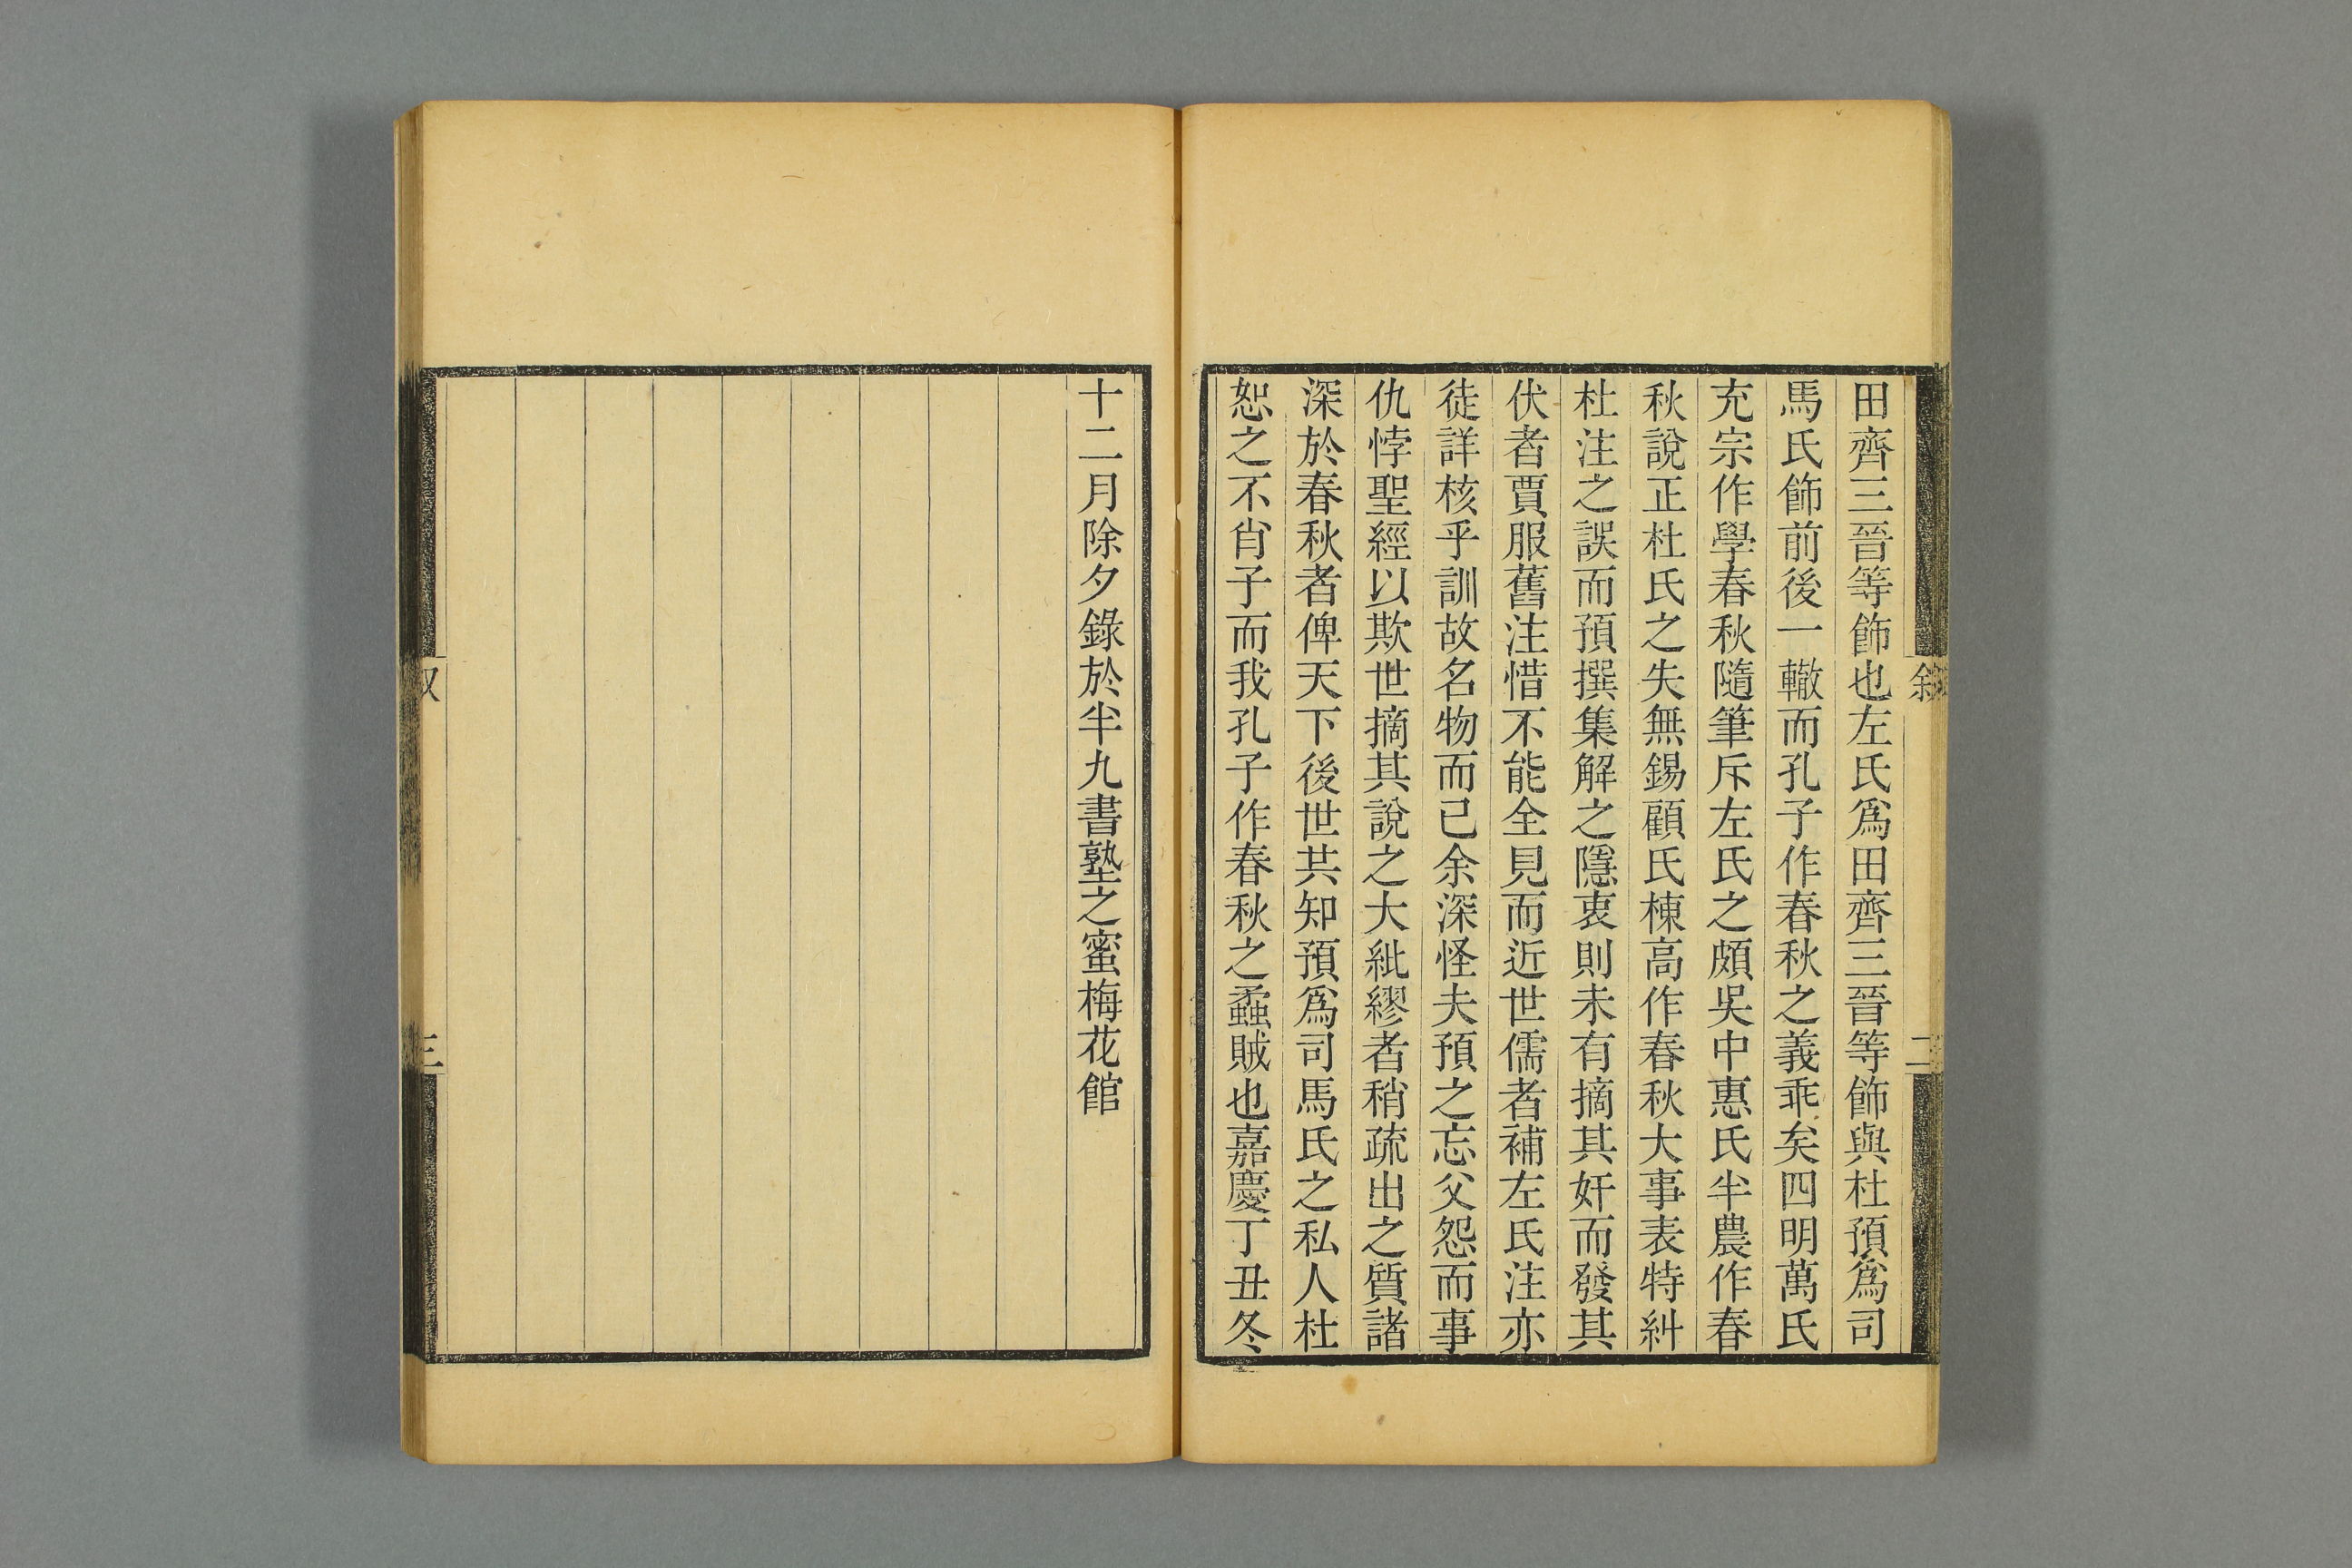 田齊三晉等飾也左氏爲田齊三晉等飾與杜預爲司
馬氏飾前後一轍而孔子作春秋之義乖矣四明萬氏
充宗作學春秋隨筆斥左氏之頗吳中惠氏半農作春
秋說正杜氏之失無錫顧氏棟高作春秋大事表特糾
杜注之誤而預撰集解之隱衷則未有摘其奸而發其
伏者賈服舊注惜不能全見而近世儒者補左氏注亦
徒詳核乎訓故名物而已余深怪夫預之忘父怨而事
仇悖聖經以欺世摘其說之大紕繆者稍疏出之質諸
深於春秋者俾天下後世共知預爲司馬氏之私人杜
恕之不肖子而我孔子作春秋之蟊賊也嘉慶丁丑冬
敘
二
十二月除夕錄於半九書塾之蜜梅花館
三